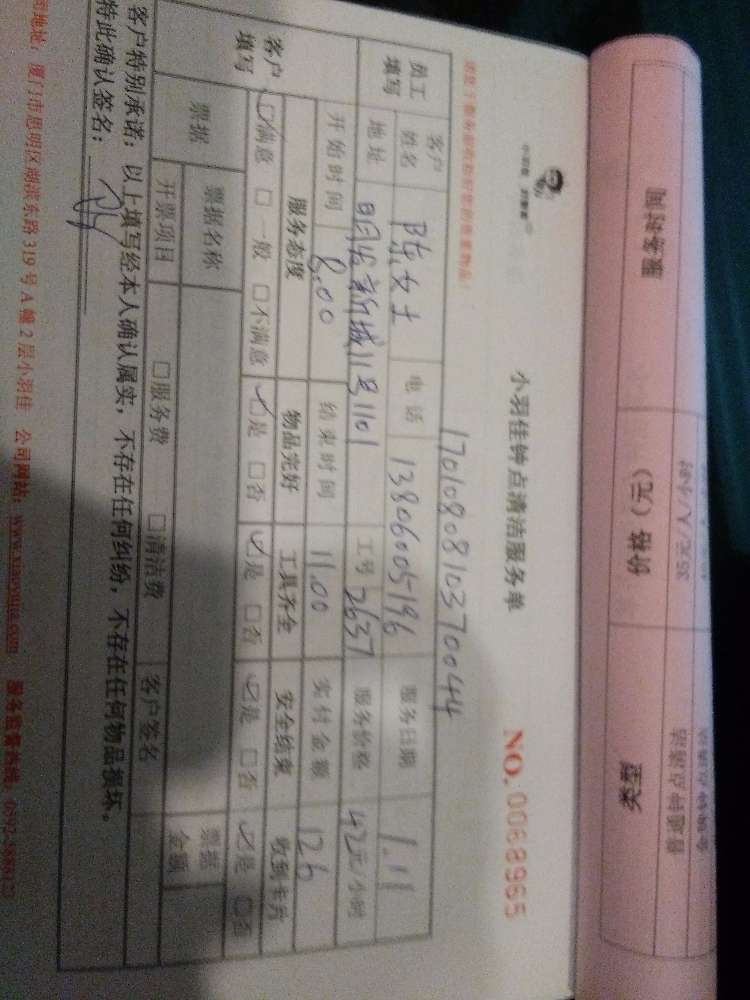 服务时间 价格（元） 类型
35元/人/小时 普通钟点清洁
小羽佳钟点清洁服务单 NO. 0068965
1701080810370044
员工填写 客户姓名 陈女士 电话 13806005196 服务日期 1.11
地址 明发新城11号1101 工号 2637 服务价格 42元/小时
客户填写 开始时间 8.00 结束时间 11.00 实付金额 126
服务态度 物品完好 工具齐全 安全结束 收到卡片
☑满意 □一般 □不满意 ☑是 □否 ☑是 □否 ☑是 □否 ☑是 □否
票据 票据名称 票据金额
开票项目 □服务费 □清洁费 客户签名
客户特别承诺：以上填写经本人确认属实，不存在任何纠纷，不存在任何物品损坏。
特此确认签名：
地址：厦门市思明区湖滨东路319号A幢2层小羽佳 公司网站：www.xiaoyujia.com 服务监督热线：